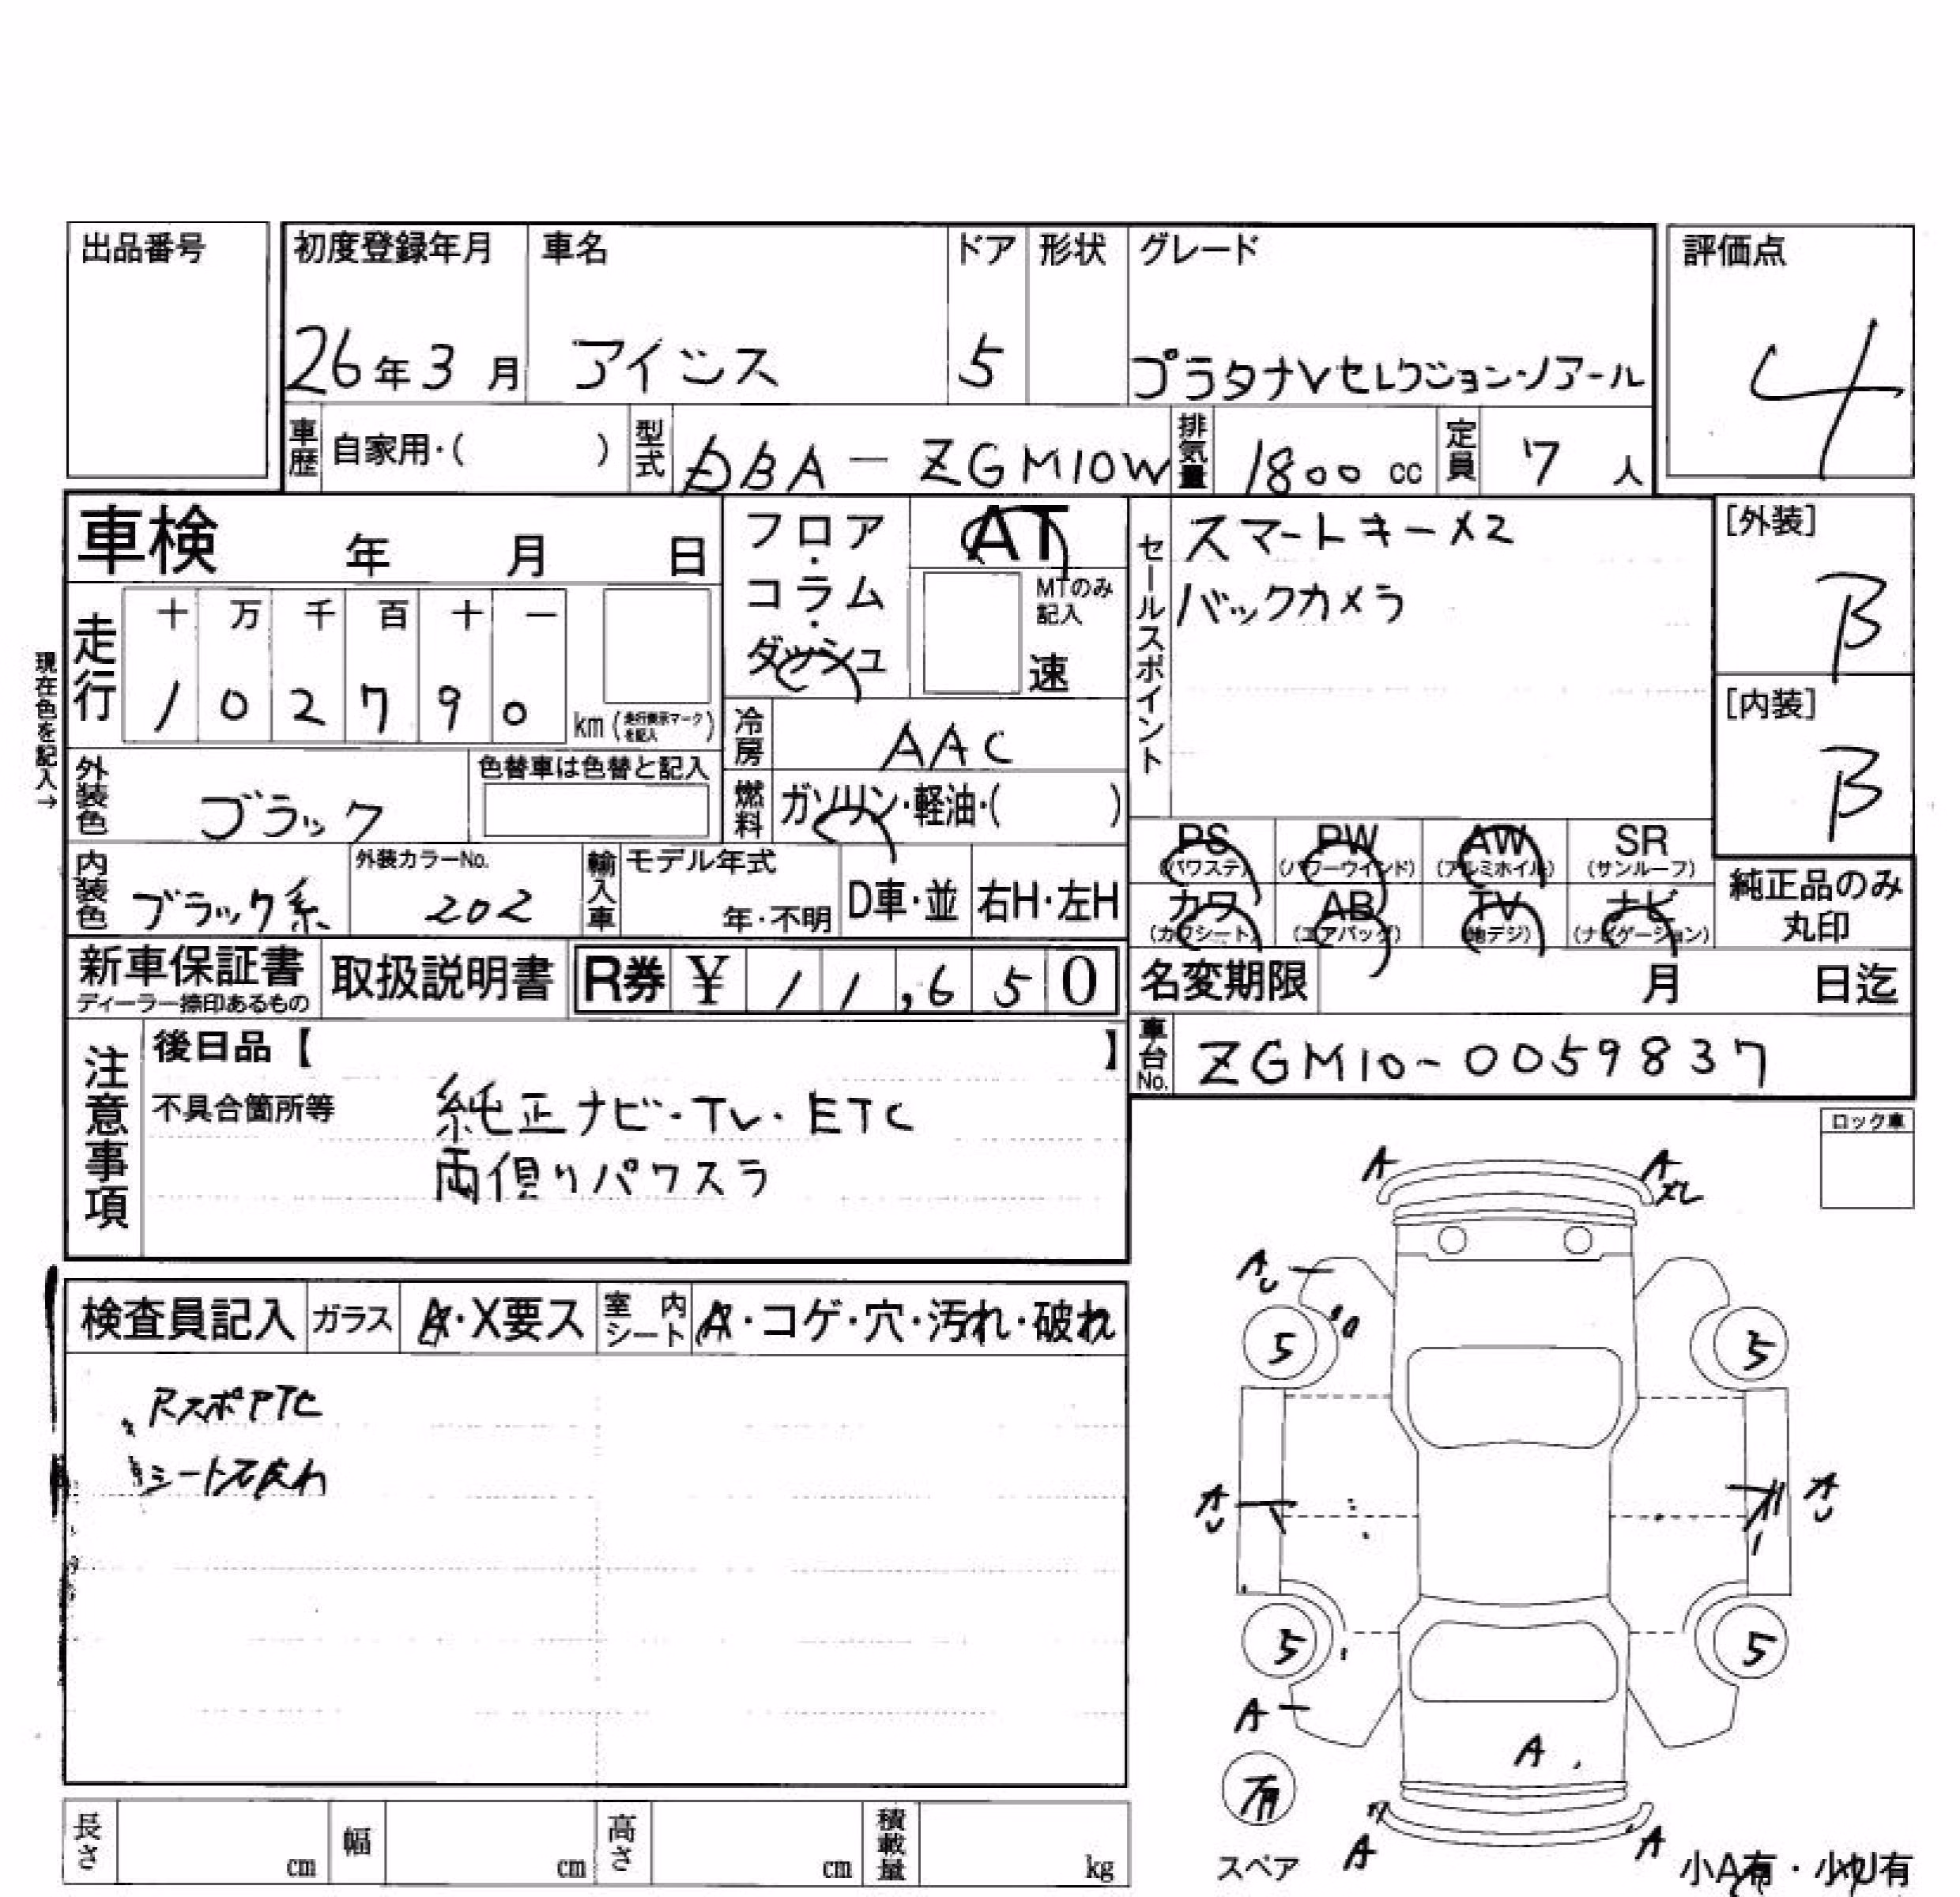 出品番号
初度登録年月
26年3月
車名
アイシス
ドア
5
形状
グレード
プラタナVセレクション・ノアール
評価点
4
車歴
自家用・( )
型式
DBA-ZGM10W
排気量
1800 cc
定員
7 人
車検 年 月 日
フロア・コラム・ダッシュ
AT
MTのみ記入
速
セールスポイント
スマートキー×2
バックカメラ
[外装]
B
[内装]
B
現在色を記入→
走行
十 万 千 百 十 一
1 0 2 7 9 0
km (走行表示マークを記入)
冷房
AAC
燃料
ガソリン・軽油・( )
外装色
ブラック
色替車は色替と記入
内装色
ブラック系
外装カラーNo.
202
輸入車
モデル年式
年・不明
D車・並
右H・左H
PS (パワステ)
PW (パワーウインド)
AW (アルミホイル)
SR (サンルーフ)
カワ (カワシート)
AB (エアバッグ)
TV (地デジ)
ナビ (ナビゲーション)
純正品のみ丸印
新車保証書
ディーラー捺印あるもの
取扱説明書
R券 ¥ 11,650
名変期限 月 日迄
車台No.
ZGM10-0059837
注意事項
後日品【 】
不具合箇所等
純正ナビ・TV・ETC
両側パワスラ
ロック車
検査員記入
ガラス
A・X要ス
室内シート
A・コゲ・穴・汚れ・破れ
シート
A
A
A
5
5
5
5
A
A
有
スペア
A
A
小A有・小U有
長さ cm
幅 cm
高さ cm
積載量 kg